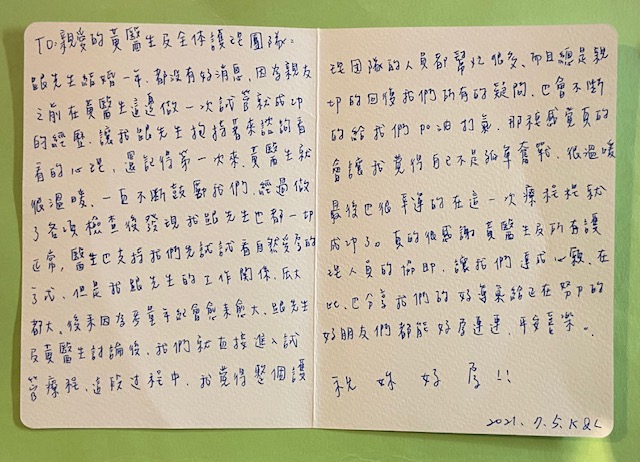 TO:親愛的黃醫生及全体護理團隊:
跟先生結婚一年,都沒有好消息,因為親友
之前在黃醫生這邊做一次試管就成功
的經歷,讓我跟先生抱持著來諮詢看
看的心理,還記得第一次來,黃醫生就
很溫暖,一直不斷鼓勵我們,經過做
了各項檢查後發現我跟先生也都一切
正常,醫生也支持我們先試試看自然受孕的
方式,但是我跟先生的工作關係,
都大,後來因為考量年紀會愈來愈大,跟先生
及黃醫生討論後,我們就直接進入試
管療程,這段过程中,我覺得整個護
理团隊的人員都幫忙很多,而且總是親
切的回復我們所有的疑問,也會不斷
的給我們加油打氣,那種感覺真的
會讓我覺得自己不是孤單奮戰,很溫暖
最後也很幸運的在這一次療程裡就
成功了。真的很感謝黃醫生及所有護
理人員的協助,讓我們達成心願,在
此,也分享我們的好孕氣給正在努力的
好朋友們都能好孕連連,平安喜樂。
祝 妳 好 孕!!
2021.7.5.K&L